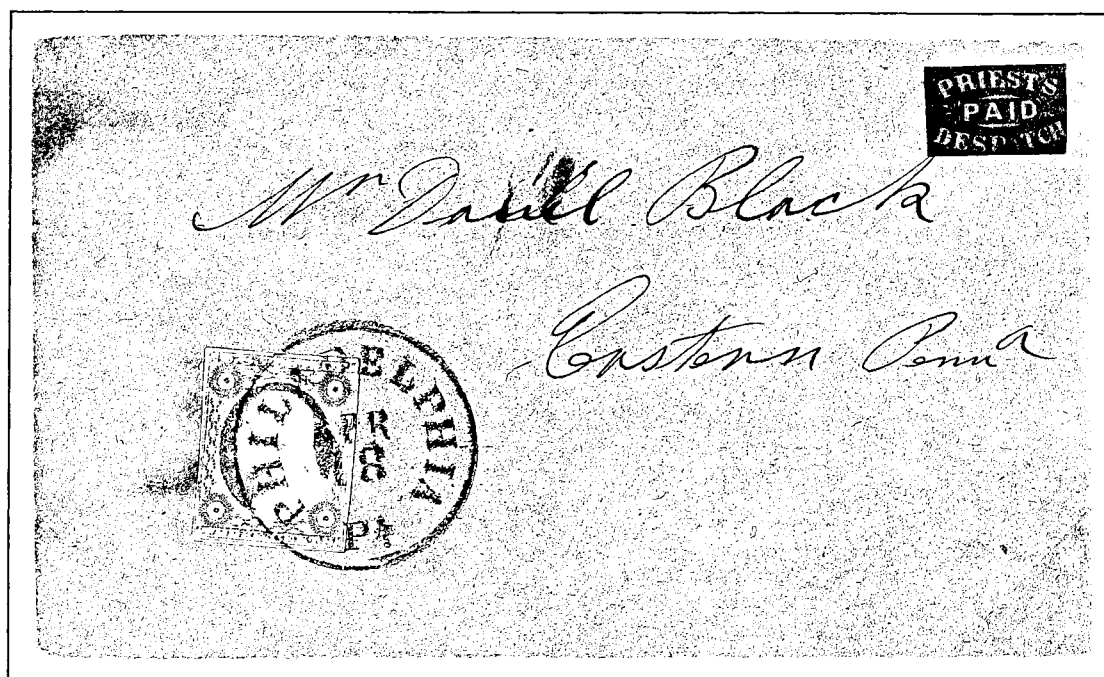 PRIEST'S
PAID
DESPATCH
Mr Daniel Black
Easton Penn a
PHILADELPHIA
APR
8
PA